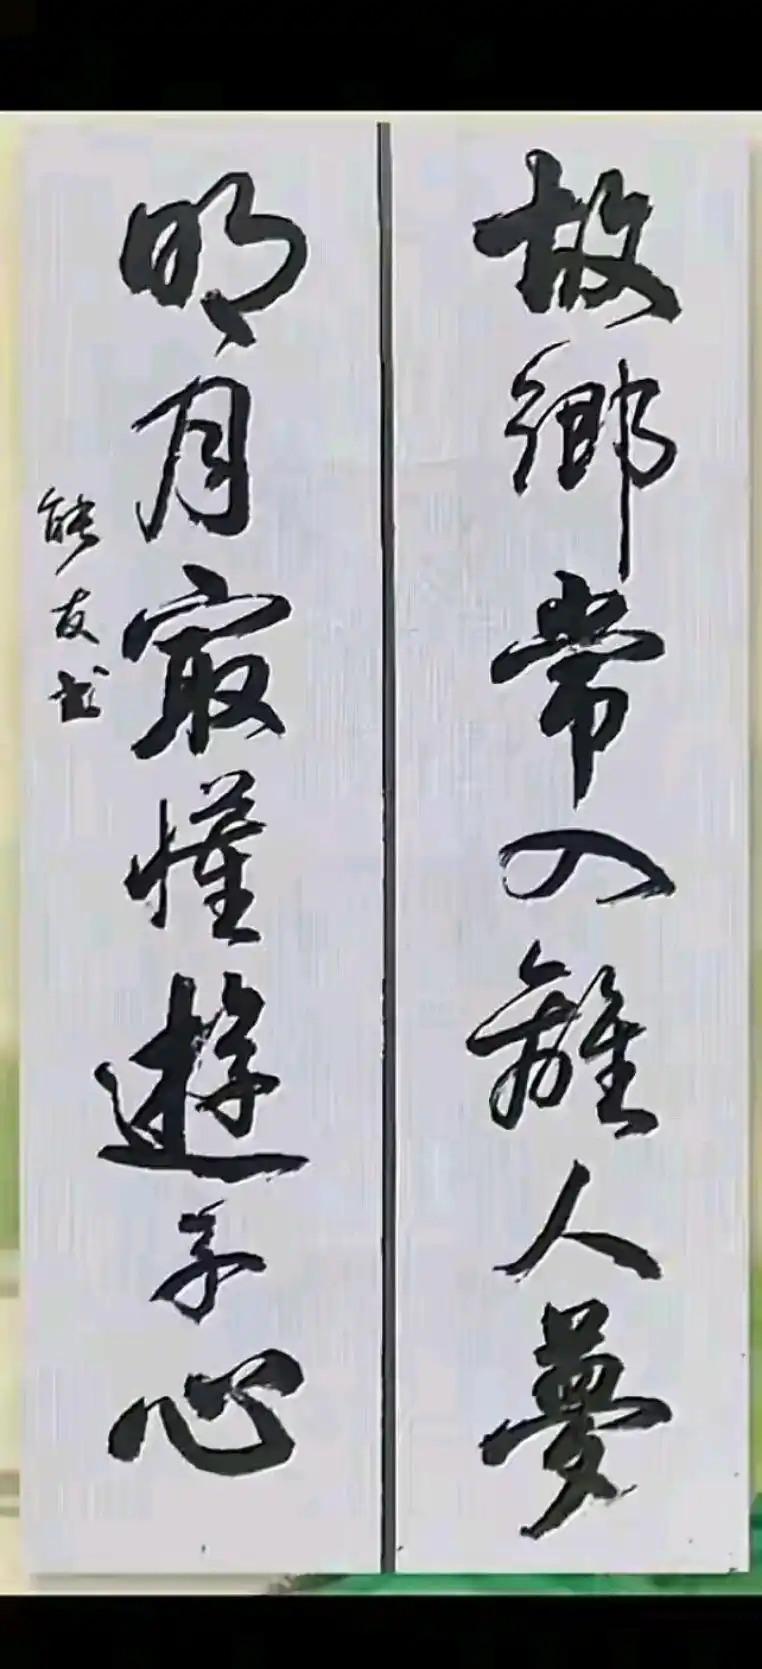 故鄉常入離人夢
明月寂懂遊子心
能友书